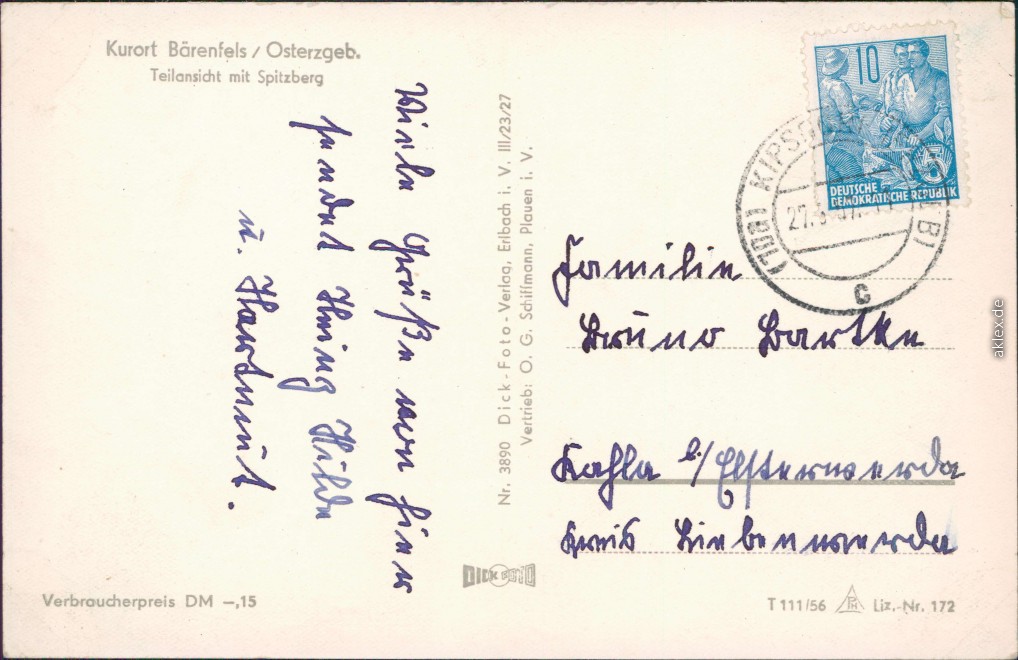 Kurort Bärenfels / Osterzgeb.
Teilansicht mit Spitzberg
Viele Grüße von hier
sendet Heinz Hilde
u. Hartmut.
Nr. 3890 Dick-Foto-Verlag, Erlbach i. V. III/23/27
Vertrieb: O. G. Schiffmann, Plauen i. V.
10
5
DEUTSCHE
DEMOKRATISCHE REPUBLIK
(10a) KIPSD
27.
C
Familie
Bruno Bartke
Kahla b/Elsterwerda
Kreis Liebenwerda
DICK FOTO
Verbraucherpreis DM –,15
T 111/56 Liz.-Nr. 172
aklex.de